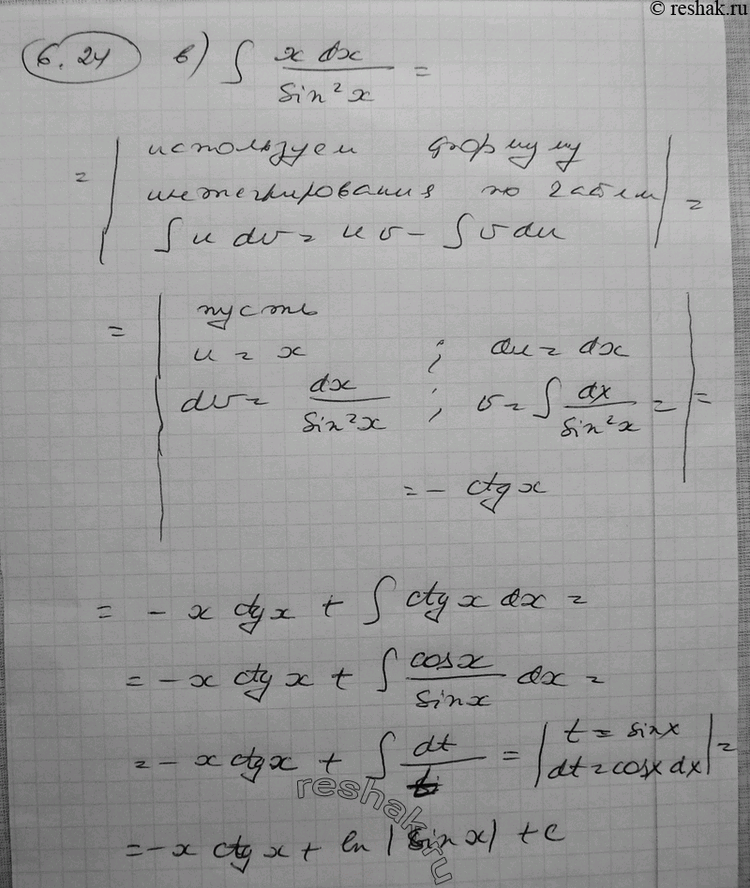 © reshak.ru
6.24 в) ∫ x dx / sin²x =
= | используем формулу
интегрирования по частям
∫ u dv = uv - ∫ v du | =
= | пусть
u = x ; du = dx
dv = dx / sin²x ; v = ∫ dx / sin²x =
= - ctg x | =
= - x ctg x + ∫ ctg x dx =
= - x ctg x + ∫ cos x / sin x dx =
= - x ctg x + ∫ dt / t = | t = sin x
dt = cos x dx | =
= - x ctg x + ln |sin x| + c
reshak.ru